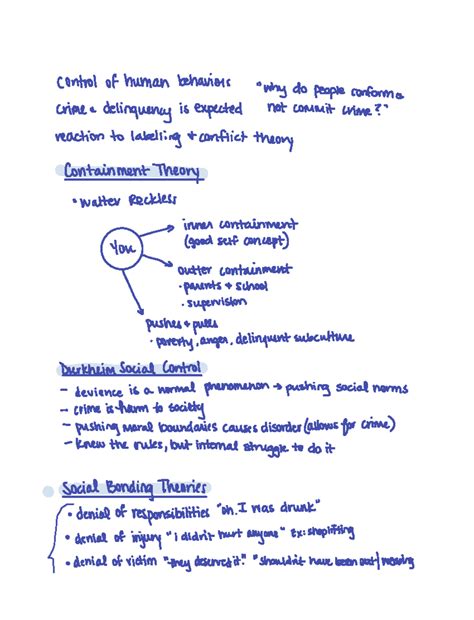 Control of human behaviors "why do people conform &
crime & delinquency is expected not commit crime?"
reaction to labelling & conflict theory
Containment Theory
• Walter Reckless
You
inner containment
(good self concept)
outter containment
• parents & school
• supervision
pushes & pulls
• poverty, anger, delinquent subculture
Durkheim Social Control
- devience is a normal phenomenon → pushing social norms
- crime is harm to society
- pushing moral boundaries causes disorder (allows for crime)
- knew the rules, but internal struggle to do it
Social Bonding Theories
• denial of responsibilities "oh. I was drunk"
• denial of injury "i didn't hurt anyone" Ex: shoplifting
• denial of victim "they deserves it." "shouldn't have been out/wearing